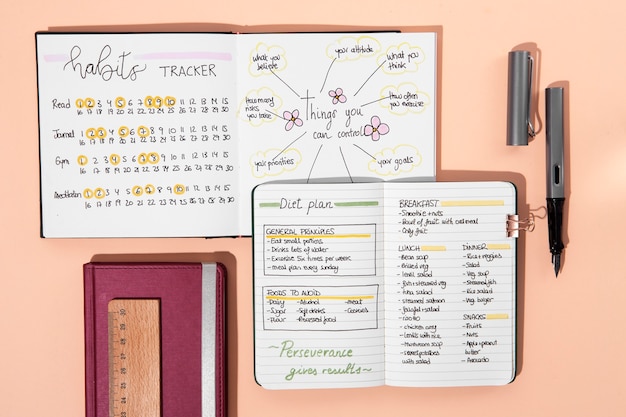 habits TRACKER
Read 1 2 3 4 5 6 7 8 9 10 11 12 13 14 15
16 17 18 19 20 21 22 23 24 25 26 27 28 29 30
Journal 1 2 3 4 5 6 7 8 9 10 11 12 13 14 15
16 17 18 19 20 21 22 23 24 25 26 27 28 29 30
Gym 1 2 3 4 5 6 7 8 9 10 11 12 13 14 15
16 17 18 19 20 21 22 23 24 25 26 27 28 29 30
Meditation 1 2 3 4 5 6 7 8 9 10 11 12 13 14 15
16 17 18 19 20 21 22 23 24 25 26 27 28 29 30
what you
believe
your attitude
What you
think
How many
risks
you take
How often
you exercise
Things you
can control
your priorities
your goals
Diet plan
GENERAL PRINCIPLES
- Eat small portions
- Drinks lots of water
- Exercise six times per week
- Meal plan every sunday
FOODS TO AVOID
- Dairy - Alcohol - Meat
- Sugar - Soft drinks - Cookies
- Flour - Processed food
~Perseverance
gives results~
BREAKFAST
- Smoothie + nuts
- Bowl of fruit with oatmeal
- Only fruit
LUNCH
- Bean soup
- Baked veg
- Lentil salad
- Fish + steamed veg
- Tuna salad
- Steamed salmon
- Falafel + salad
- Chicken curry
- Lentils with rice
- Mushroom soup
with salad
DINNER
- Rice + veggies
- Salad
- Veg. soup
- Steamed fish
- Rice salad
- Veg. burger
SNACKS
- Fruits
- Nuts
- Apple + peanut
butter
- Avocado